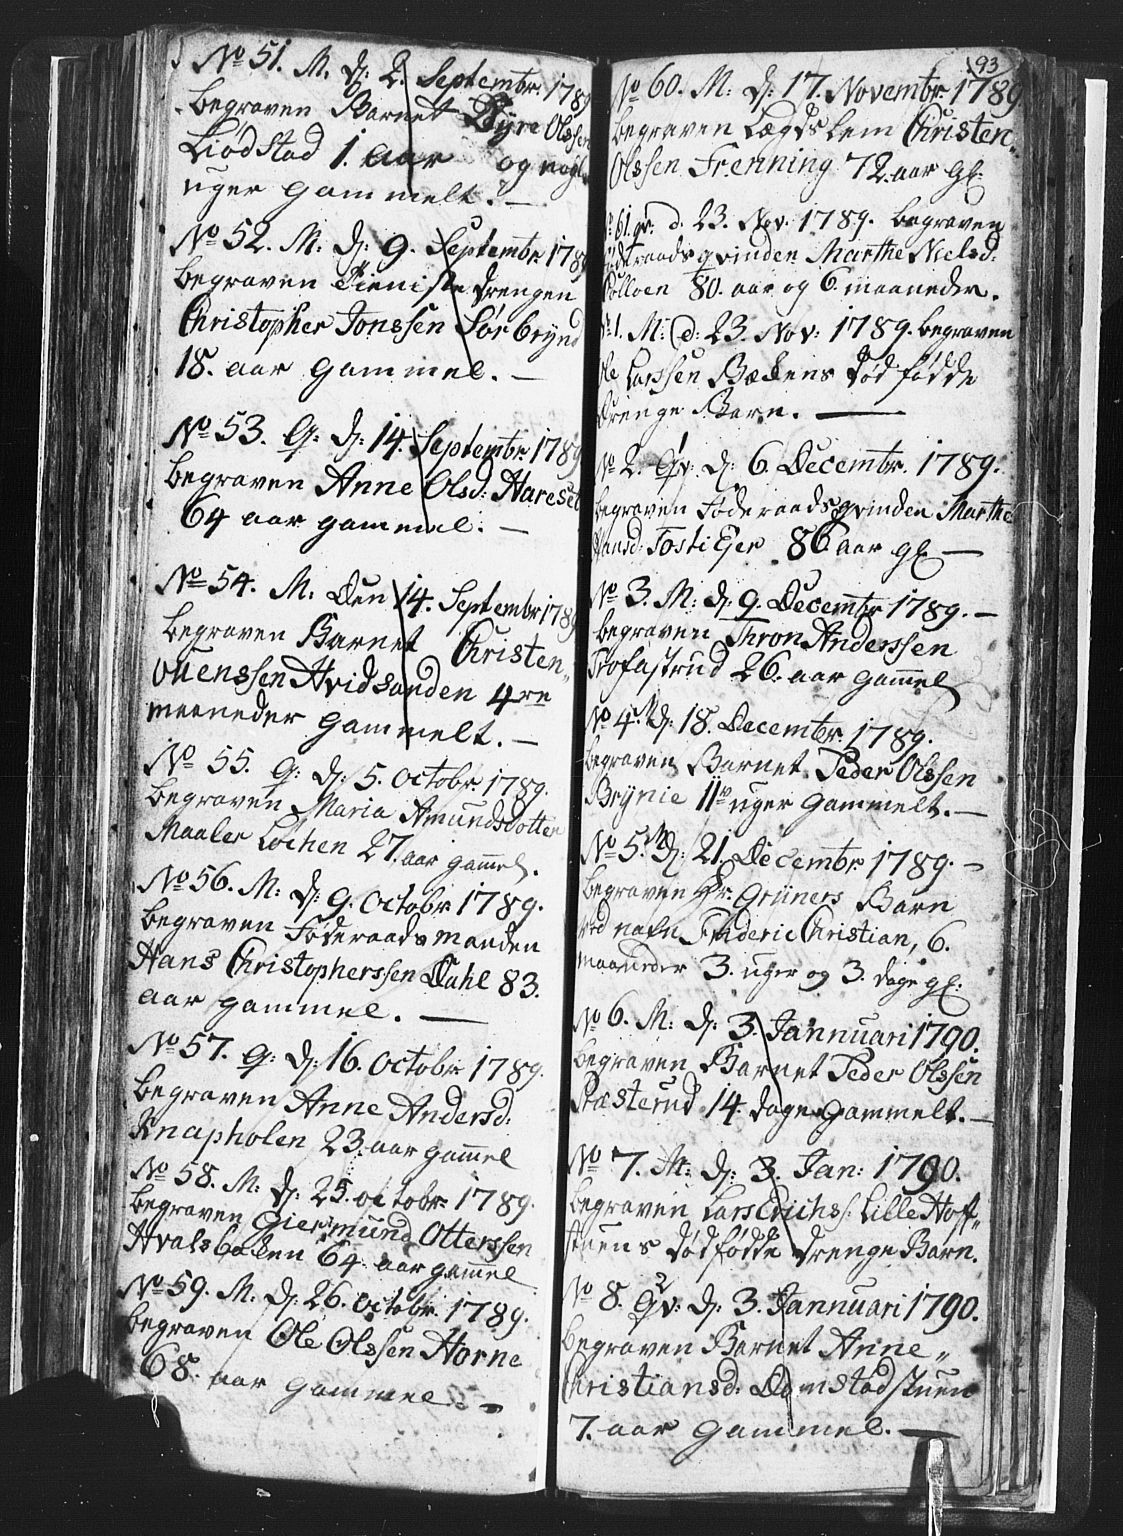 No 51. M. d: 2. Septembr: 1789
begraven Barnet Syver Olssen
Liødstad 1. aar og nogl.
uger gammelt. —
No 52. M: d: 9. Septembr: 1789
begraven Tieniste drengen
Christopher Jonssen Sørbrynd
18. aar gammel. —
No 53. Q: d: 14. Septembr: 1789
begraven Anne Olsd: Hareset
64 aar gammel. —
No 54. M. Den 14. Septembr 1789
begraven Barnet Christen
Ouenssen Hvidsanden 4re
maaneder gammelt. —
No 55. Q: d: 5. Octobr: 1789.
begraven Maria Amundsdotter
Maaler Løchen 27. aar gammel.
No 56. M: d: 9. Octobr 1789.
begraven Føderaadsmanden
Hans Christopherssen Dahl 83.
aar gammel. —
No 57. Q: d: 16. Octobr 1789.
begraven Anne Andersd:
Knapholen 23. aar gammel
No 58. M: d: 25. Octobr: 1789.
begraven Giermund Otterssen
Hvalsbaken 64. aar gammel
No 59. M. d: 26. Octobr: 1789.
begraven Ole Olssen Horne
68. aar gammel. —
93
No 60. M: d: 17. Novembr. 1789
begraven Lægds lem Christen
Olssen Frenning 72. aar gl:
No 61. qv: d. 23. Nov. 1789. begraven
raadsqvinden Marthe Nielsd:
80. aar og 6. maaneder.
No 1. M: d: 23. Nov: 1789. begraven
Ole Larssen Bækens død fødde
drenge Barn. —
No 2. Qv: d: 6. Decembr. 1789.
begraven Føderaadsqvinden Marthe
Hansd: Tosti Ejer 86 aar gl —
No 3. M: d: 9. Decembr 1789. —
begraven Thron Anderssen
Trofastrud 26. aar gammel
No 4. M d: 18. Decembr. 1789.
begraven Barnet Peder Olssen
Brynie 11 uger gammelt. —
No 5. M d: 21. Decembr 1789. —
begraven Hr. Grüners Barn
ved nafn Frideric Christian, 6.
maaneder 3. uger og 3. dage gl:
No 6. M. d: 3. Jannuari 1790.
begraven Barnet Peder Olssen
Præsterud 14. dage gammelt. —
No 7. M: d: 3. Jan: 1790.
begraven Lars Erichs: Lille Hoff
stuens dødfødde drenge Barn.
No 8. Qv: d: 3. Jannuari 1790.
begraven Barnet Anne
Christiansd: Domstadstuen
7. aar gammel. —